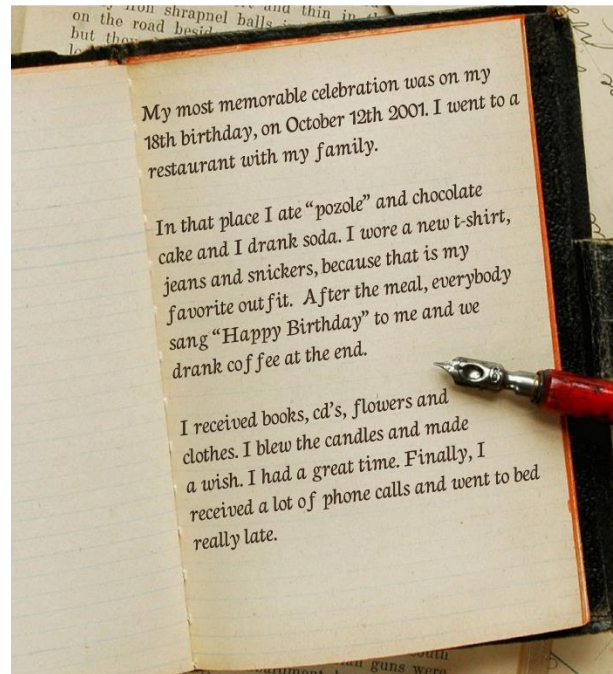 on the road besid
but thou
My most memorable celebration was on my
18th birthday, on October 12th 2001. I went to a
restaurant with my family.
In that place I ate “pozole” and chocolate
cake and I drank soda. I wore a new t-shirt,
jeans and snickers, because that is my
favorite outfit. After the meal, everybody
sang “Happy Birthday” to me and we
drank coffee at the end.
I received books, cd's, flowers and
clothes. I blew the candles and made
a wish. I had a great time. Finally, I
received a lot of phone calls and went to bed
really late.
guns were